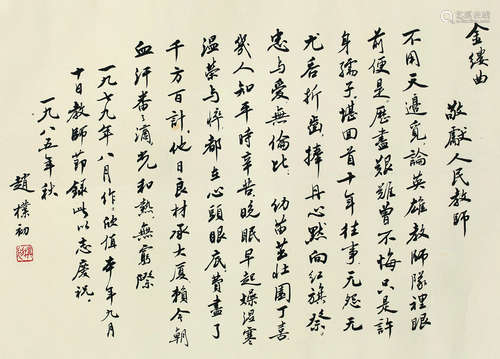 金缕曲
敬献人民教师
不用天边觅论英雄教师队里眼
前便是历尽艰难曾不悔只是许
身孺子堪回首十年往事无怨无
尤吞折齿捧丹心默向红旗祭
忠与爱无伦比 幼苗茁壮园丁喜
几人知平时辛苦晚眠早起燥湿寒
温荣与悴都在心头眼底费尽了
千方百计他日良材承大厦赖今朝
血汗番番滴光和热无穷际
一九七九年八月作欣值本年九月
十日教师节录此以志庆祝
一九八五年秋
赵朴初